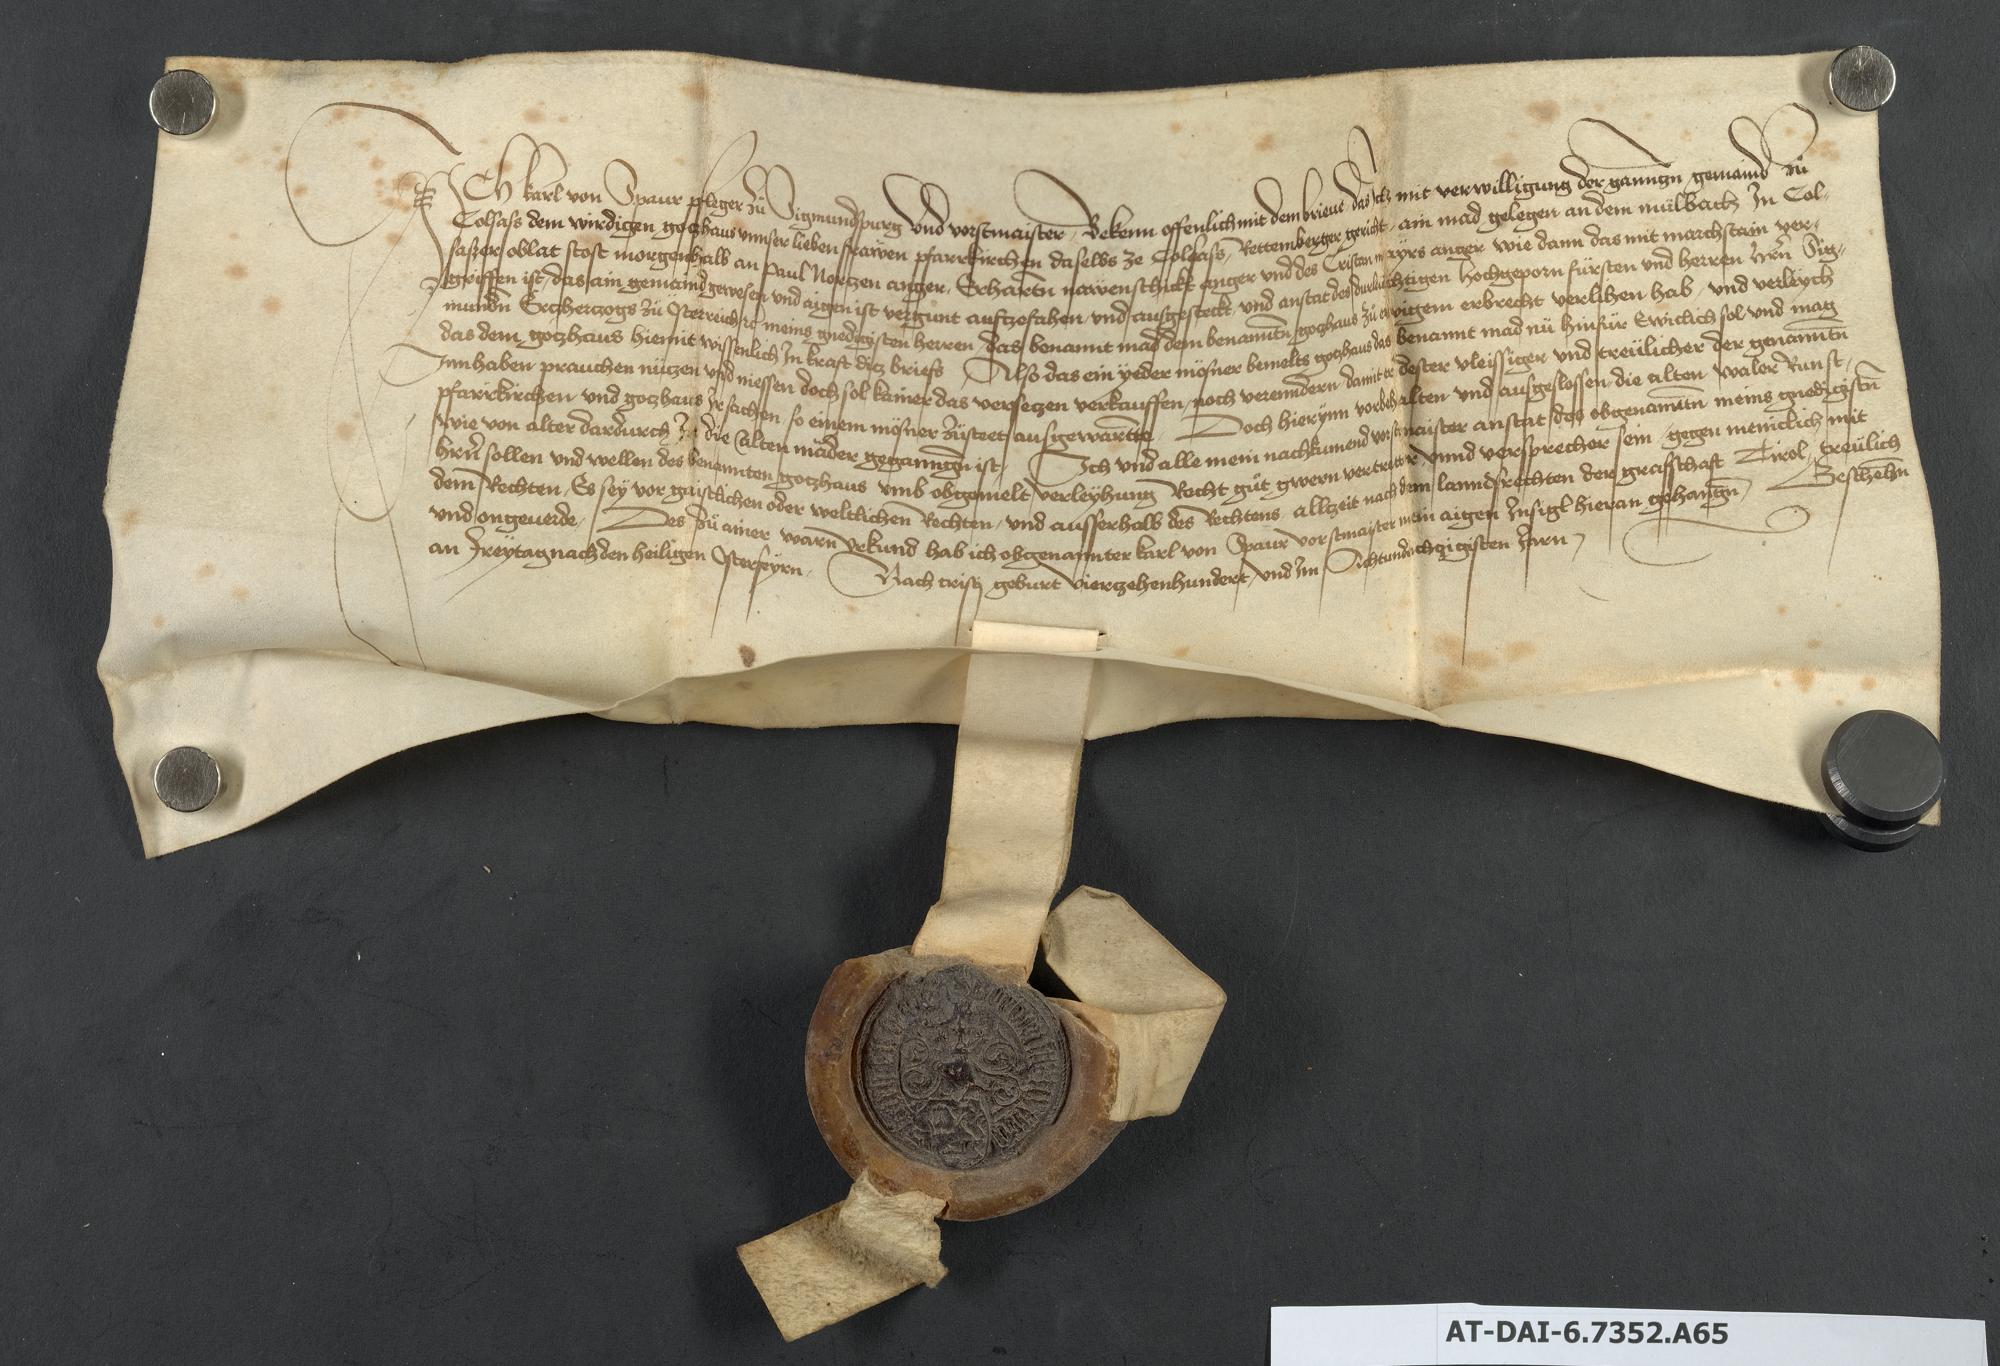 ICH karl von Spaur pfleger zů Sigmundspurg Und vorstmaister Bekenn offenlich mit dem brieve das Ich mit verwilligung der ganntzn gemaind zů
Colsass dem wirdigen gotzhaus unnser lieben frawen pfarrkirchen daselbs ze Colsass Rettemberger gericht ain mad gelegen an dem mülbach In Col-
sasser oblat stost morgenhalb an paul Nortzen anger, Erhartn nawenschickt anger und des Cristan mayrs anger wie dann das mit marchstain ver-
griffen ist das ain gemaind gewesen und aigen ist vergunt auftzefahen und ausgesteckt und anstat des durleuchtigen hochgeporn fürsten und herren hrn Sig-
mundn Ertzhertzogs zů Osterreich rc meins gnedigisten herren das benannt mad dem benanntn gotzhaus zů ewigem erbrecht verlihen hab und verleych
das dem gotzhaus hiemit wissenlich In kraft ditz briefs Also das ein yeder mösner bemelts gotzhaus das benannt mad nü hinfür Ewiclich sol und mag
Innhaben prauchen nützen und niessen doch sol kainer das versetzen verkauffen noch verenndern damit er dester vleissiger und treülicher der genanntn
pfarrkirchen und gotzhaus Ir sachen so einem mösner zůsteet ausgewartte Doch hierynn vorbehalten und ausgeslossen die alten waler Runst
wie von alter dardurch In die Alten mäder geganngn ist Ich und alle mein nachkumend vorstmaister anstat des obgenanntn meins gnedigistn
hern sollen und wellen des benannten gotzhaus umb obgemelt verleyhung Recht güt gwern vertretter unnd versprecher sein gegen meniclich mit
dem Rechten Es sey vor gaistlichen oder weltlichen Rechten und ausserhalb des Rechtens alltzeit nach dem lanndsrechten der grafschaft Tirol treülich
und ongeuerde Des zů ainer warn Urkund hab ich obgenannter karl von Spaur vorstmaister mein aigen Insigl hieran gehangn Beschehn
an Freytag nach den heiligen Osterfeyrn Nach cristj geburt viertzehenhundert und Im Achtundachtzigisten Jarn
AT-DAI-6.7352.A65